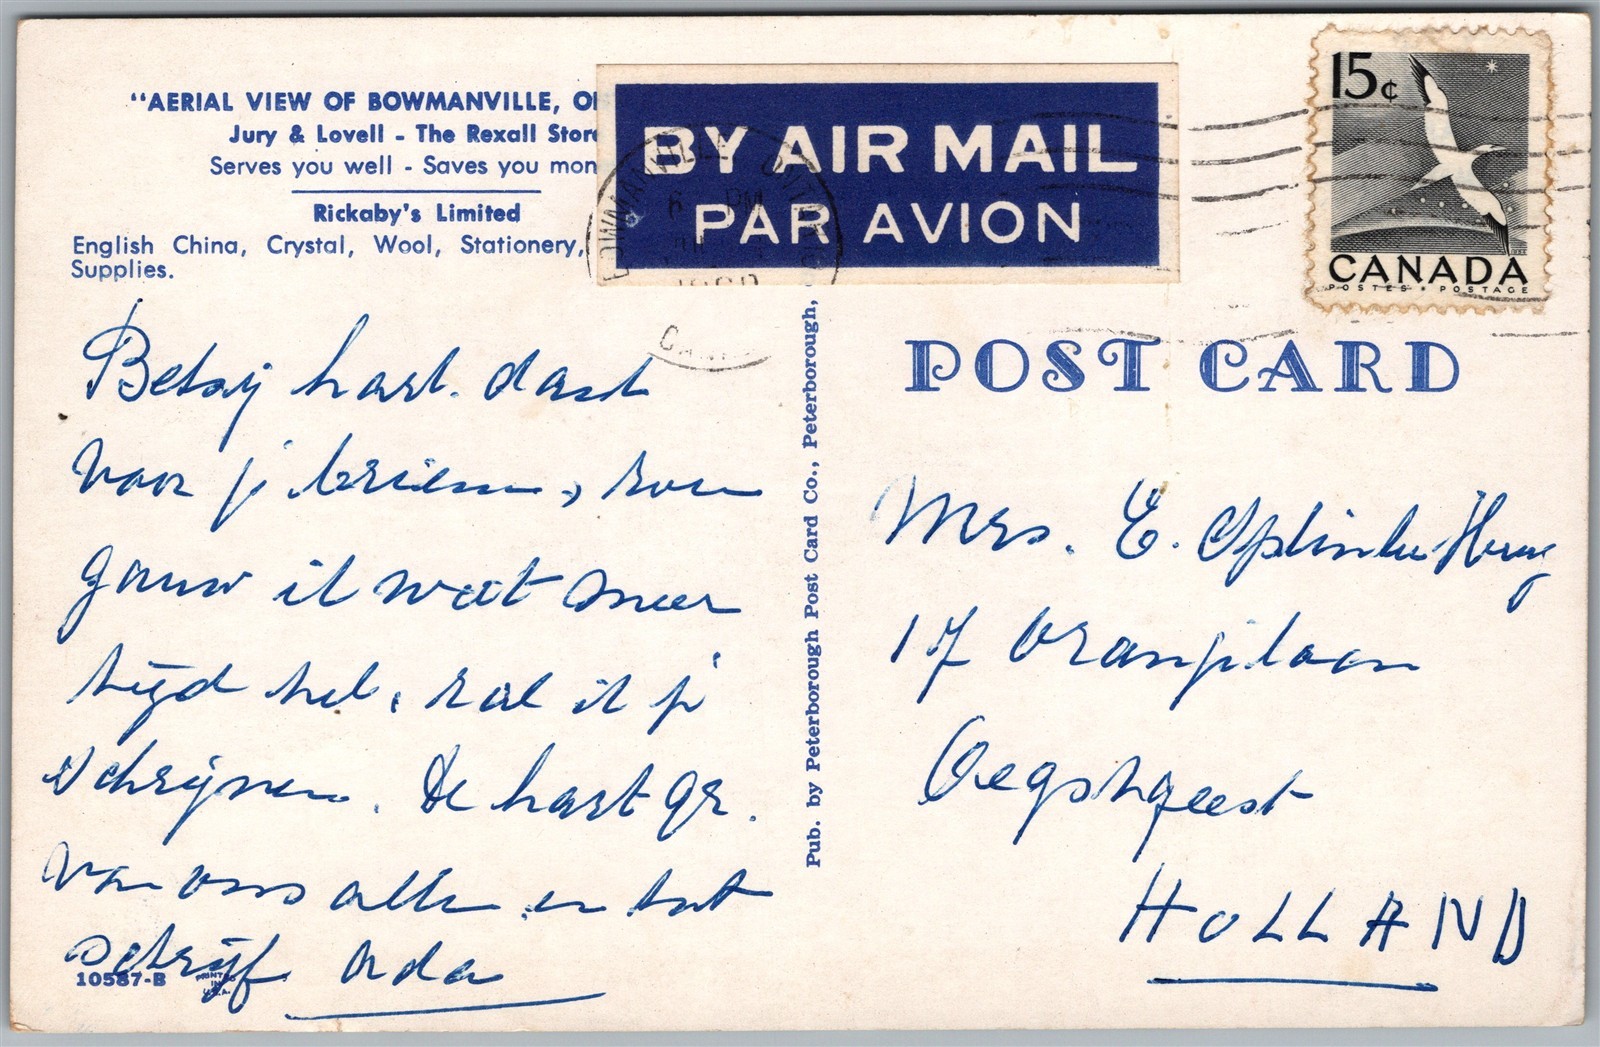 "AERIAL VIEW OF BOWMANVILLE, O
Jury & Lovell - The Rexall Store
Serves you well - Saves you mon
Rickaby's Limited
English China, Crystal, Wool, Stationery,
Supplies.
BY AIR MAIL
PAR AVION
BOWMANVILLE ONT
PM
15¢
CANADA
POSTES • POSTAGE
POST CARD
Betsy hart. dank
voor je brieven, zoo
gauw ik wat meer
tijd heb, zal ik je
schrijven. De hart gr.
van ons allen en tot
schrijf Ada
10587-B
PRINTED
IN
U.S.A.
Pub. by Peterborough Post Card Co., Peterborough,
Mrs. E.
17 Oranjelaan
Oegstgeest
HOLLAND